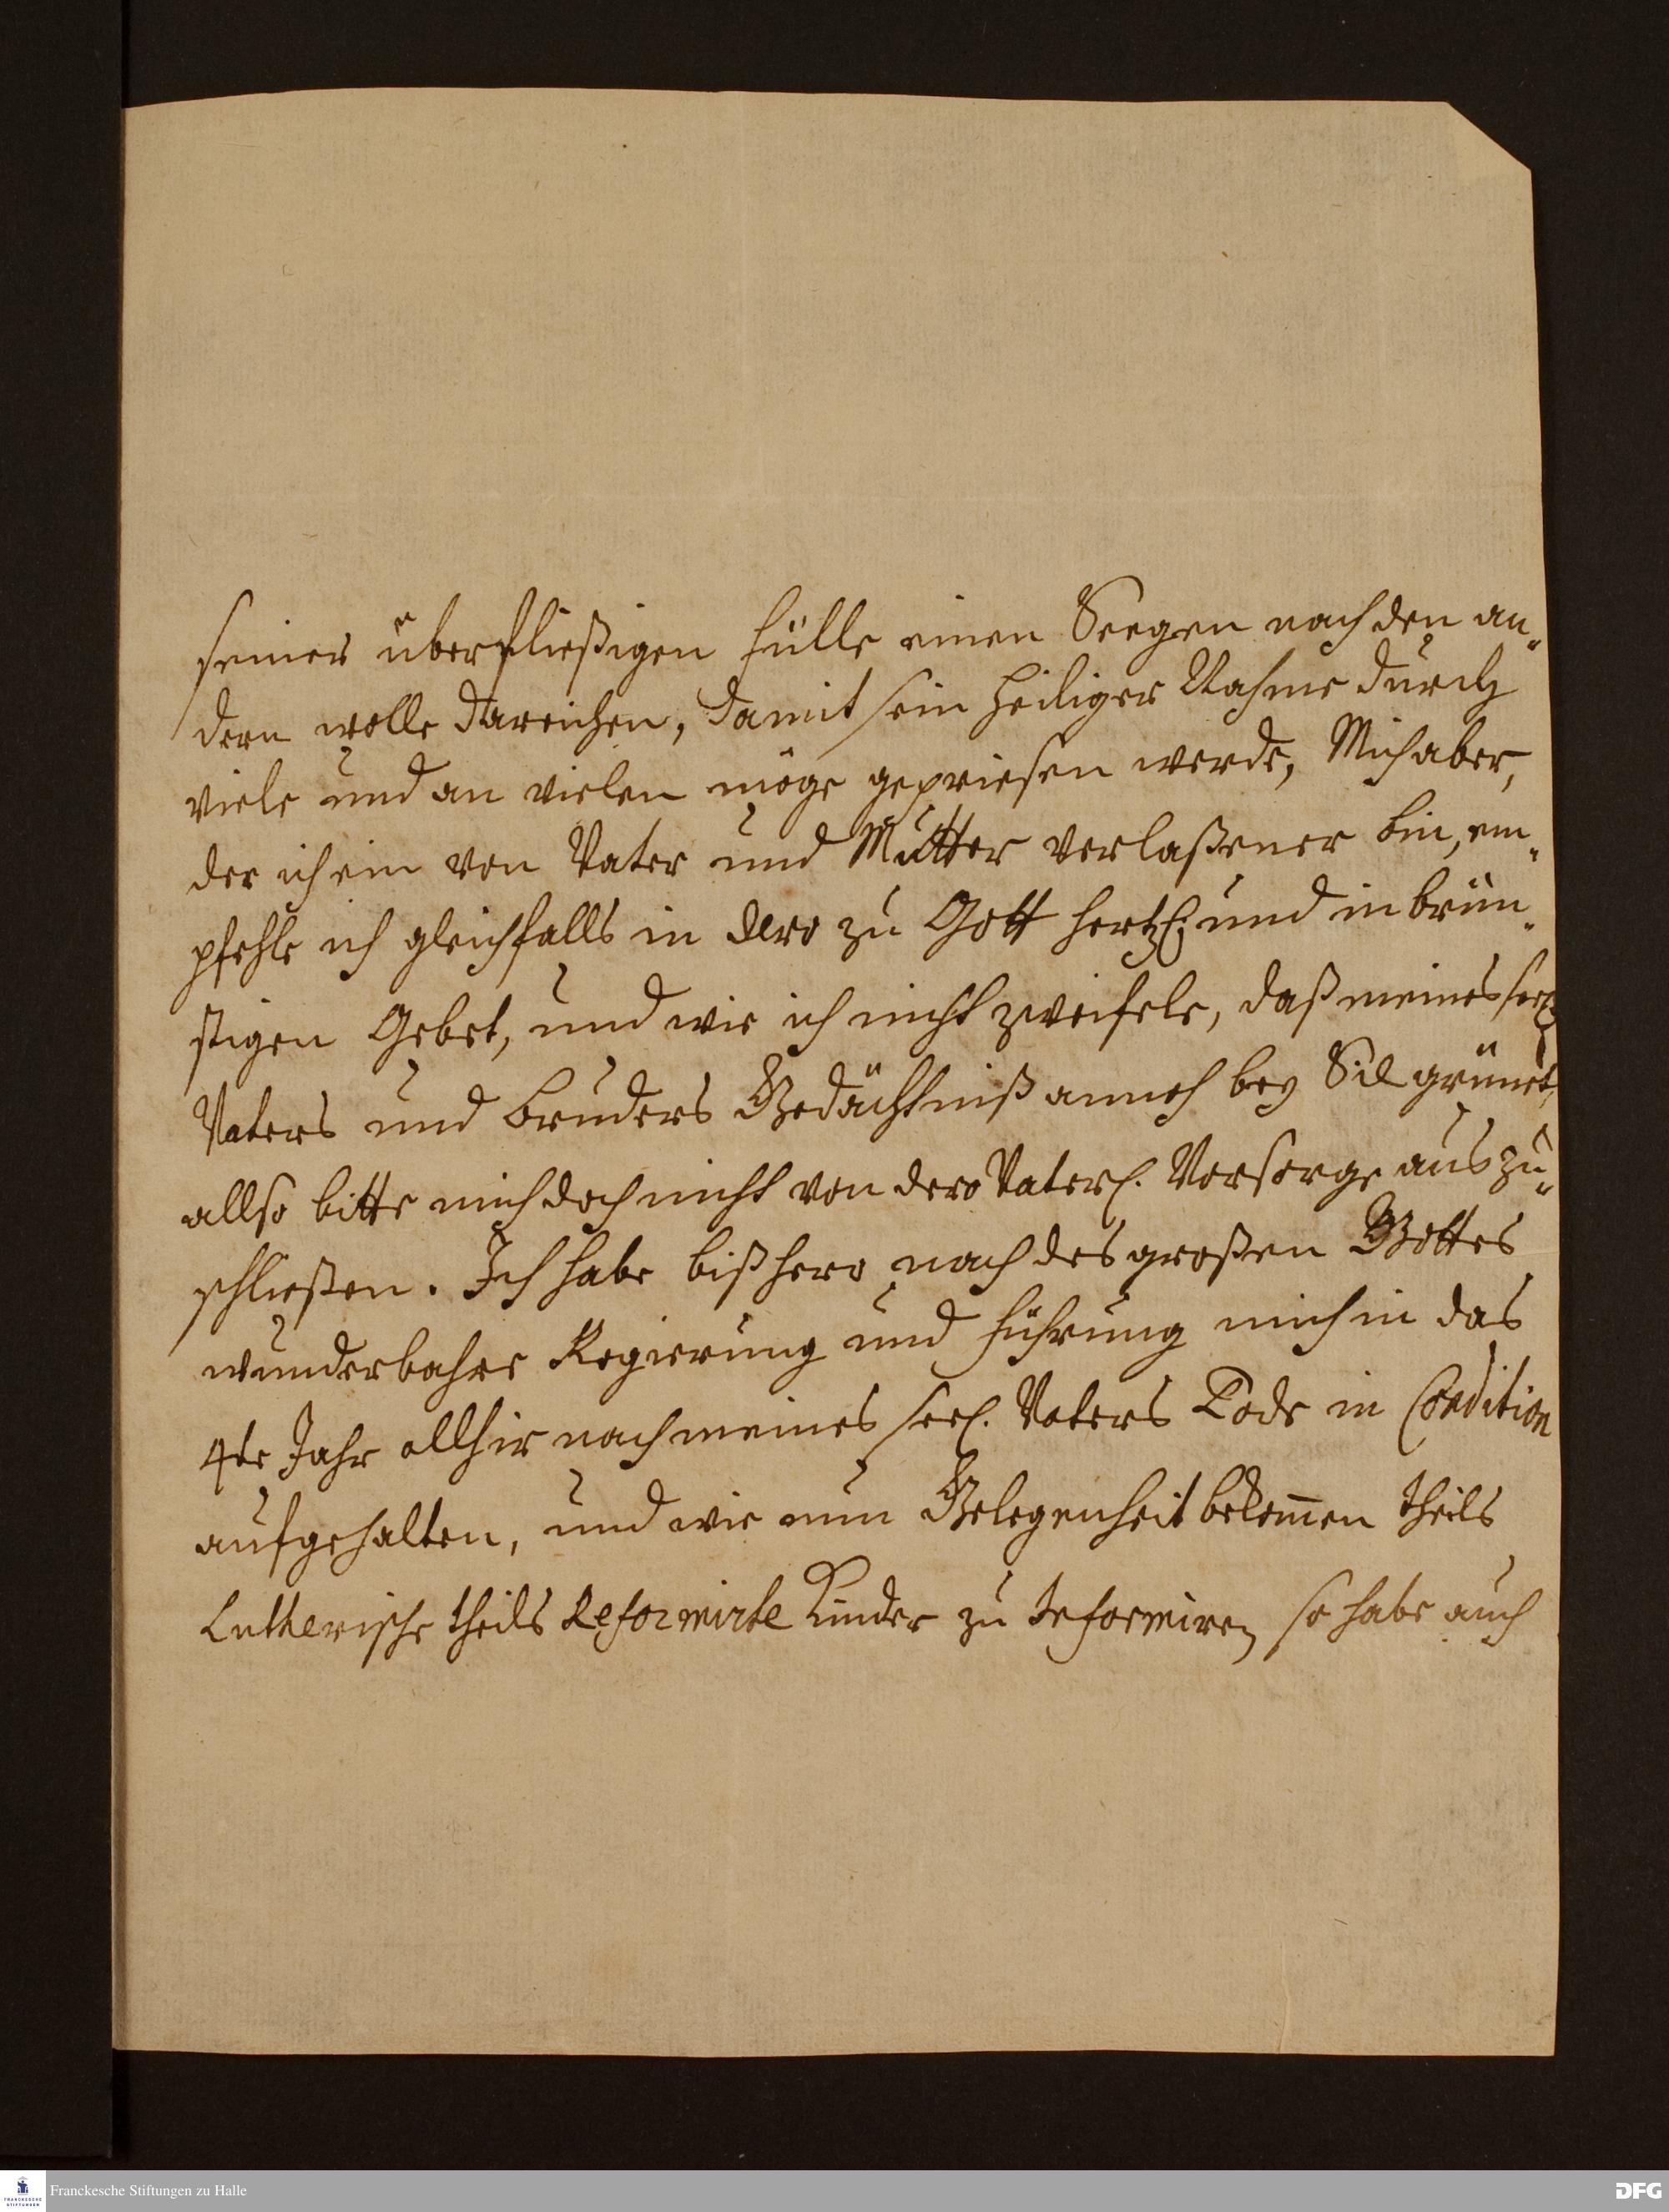 seiner überfließigen Fülle einen Seegen nach den an-
dern wolle darreichen, damit sein heiliger Nahme durch
viele und an vielen möge gepriesen werde, Mich aber,
der ich ein von Vater und Mutter verlaßener bin, em-
pfehle ich gleichfals in dero zu Gott hertzl. und inbrün-
stigen Gebet, und wie ich nicht zweifele, daß meines seel.
Vaters und Bruders Gedächtniß annoch bey Sie grünet,
allso bitte mich doch nicht von dero Väterl. Vorsorge auszu-
schließen. Ich habe bißhero nach des großen Gottes
wunderbahre Regierung und Führung mich in das
4te Jahr allhir nach meines seel. Vaters Tode in Condition
aufgehalten, und wie nun Gelegenheit bekom̄en theils
Lutherische theils Reformirte Kinder zu Informiren so habe auch
Franckesche Stiftungen zu Halle
FRANCKESCHE
STIFTUNGEN
DFG